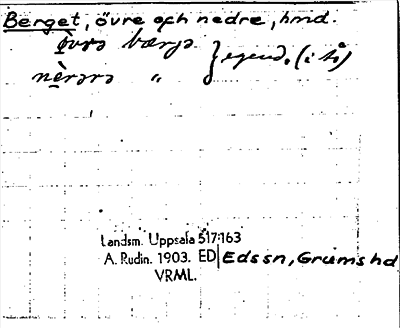 Berget, övre och nedre, hmd.
ö̀vrə bærjə
nèrərə " } egend. (i tå)
Landsm. Uppsala 517:163
A. Rudin. 1903. ED Edssn, Grums hd
VRML.